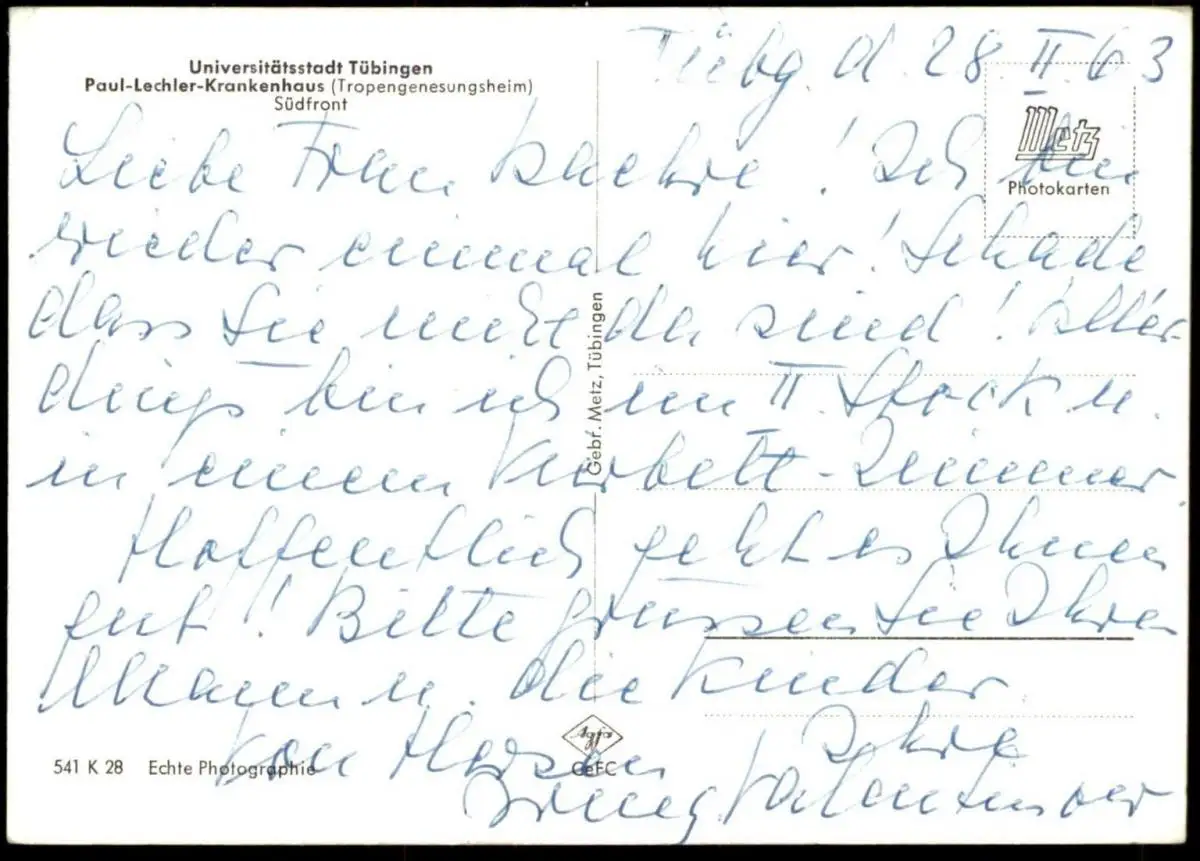 Universitätsstadt Tübingen
Paul-Lechler-Krankenhaus (Tropengenesungsheim)
Südfront
Tübg. d. 28. II. 63
Metz
Photokarten
Liebe Frau ! Ich bin
wieder einmal hier! Schade
dass Sie nicht da sind! Aller-
dings bin ich im II. Stock u.
in einem Vierbett-Zimmer.
Hoffentlich geht es Ihnen
gut! Bitte grüssen Sie Ihren
Mann u. die Kinder
von Herzen Ihre
Gebr. Metz, Tübingen
Agfa
CeFC
541 K 28 Echte Photographie